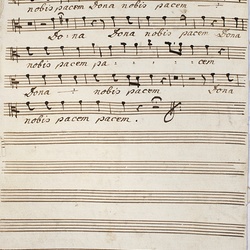 nobis pacem Dona nobis pacem
Dona Dona nobis pacem Dona
nobis pacem pa - - - cem
Dona nobis pacem Dona
nobis pacem pacem.